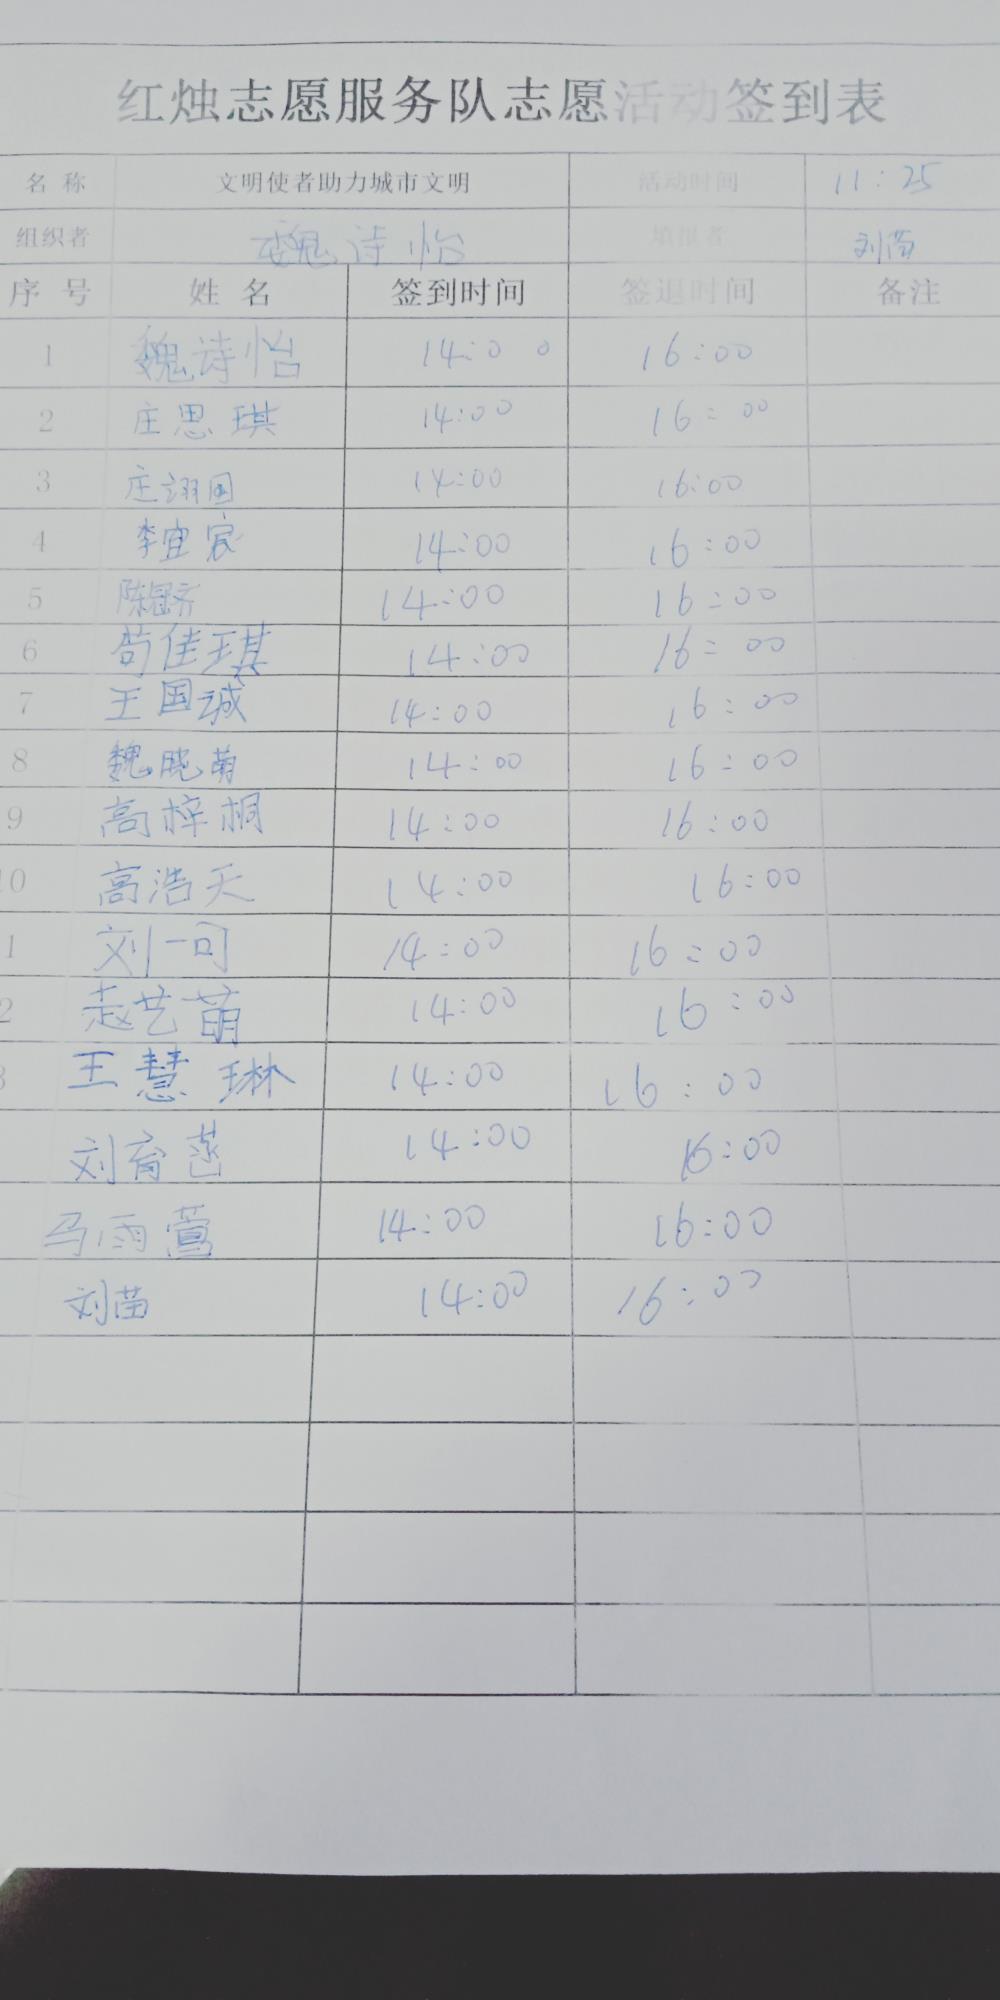 红烛志愿服务队志愿活动签到表
名 称 文明使者助力城市文明 活动时间 11:25
组织者 魏诗怡 填报者 刘苗
序 号 姓 名 签到时间 签退时间 备注
1 魏诗怡 14:00 16:00
2 庄思琪 14:00 16:00
3 庄翊国 14:00 16:00
4 李宜宸 14:00 16:00
5 陈冠齐 14:00 16:00
6 苟佳琪 14:00 16:00
7 王国诚 14:00 16:00
8 魏晓萌 14:00 16:00
9 高梓桐 14:00 16:00
10 高浩天 14:00 16:00
1 刘一可 14:00 16:00
2 赵艺萌 14:00 16:00
3 王慧琳 14:00 16:00
刘育 14:00 16:00
马雨萱 14:00 16:00
刘苗 14:00 16:00